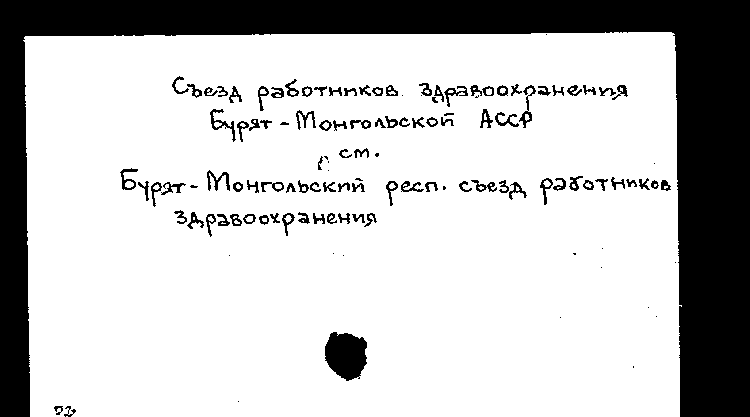 Съезд работников здравоохранения
Бурят-Монгольской АССР
см.
Бурят-Монгольский респ. съезд работников
здравоохранения